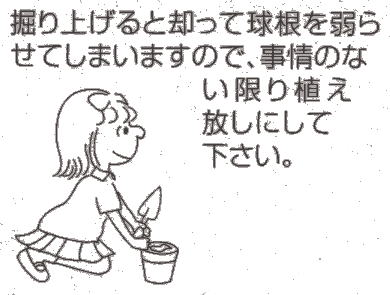 掘り上げると却って球根を弱ら
せてしまいますので、事情のな
い限り植え
放しにして
下さい。